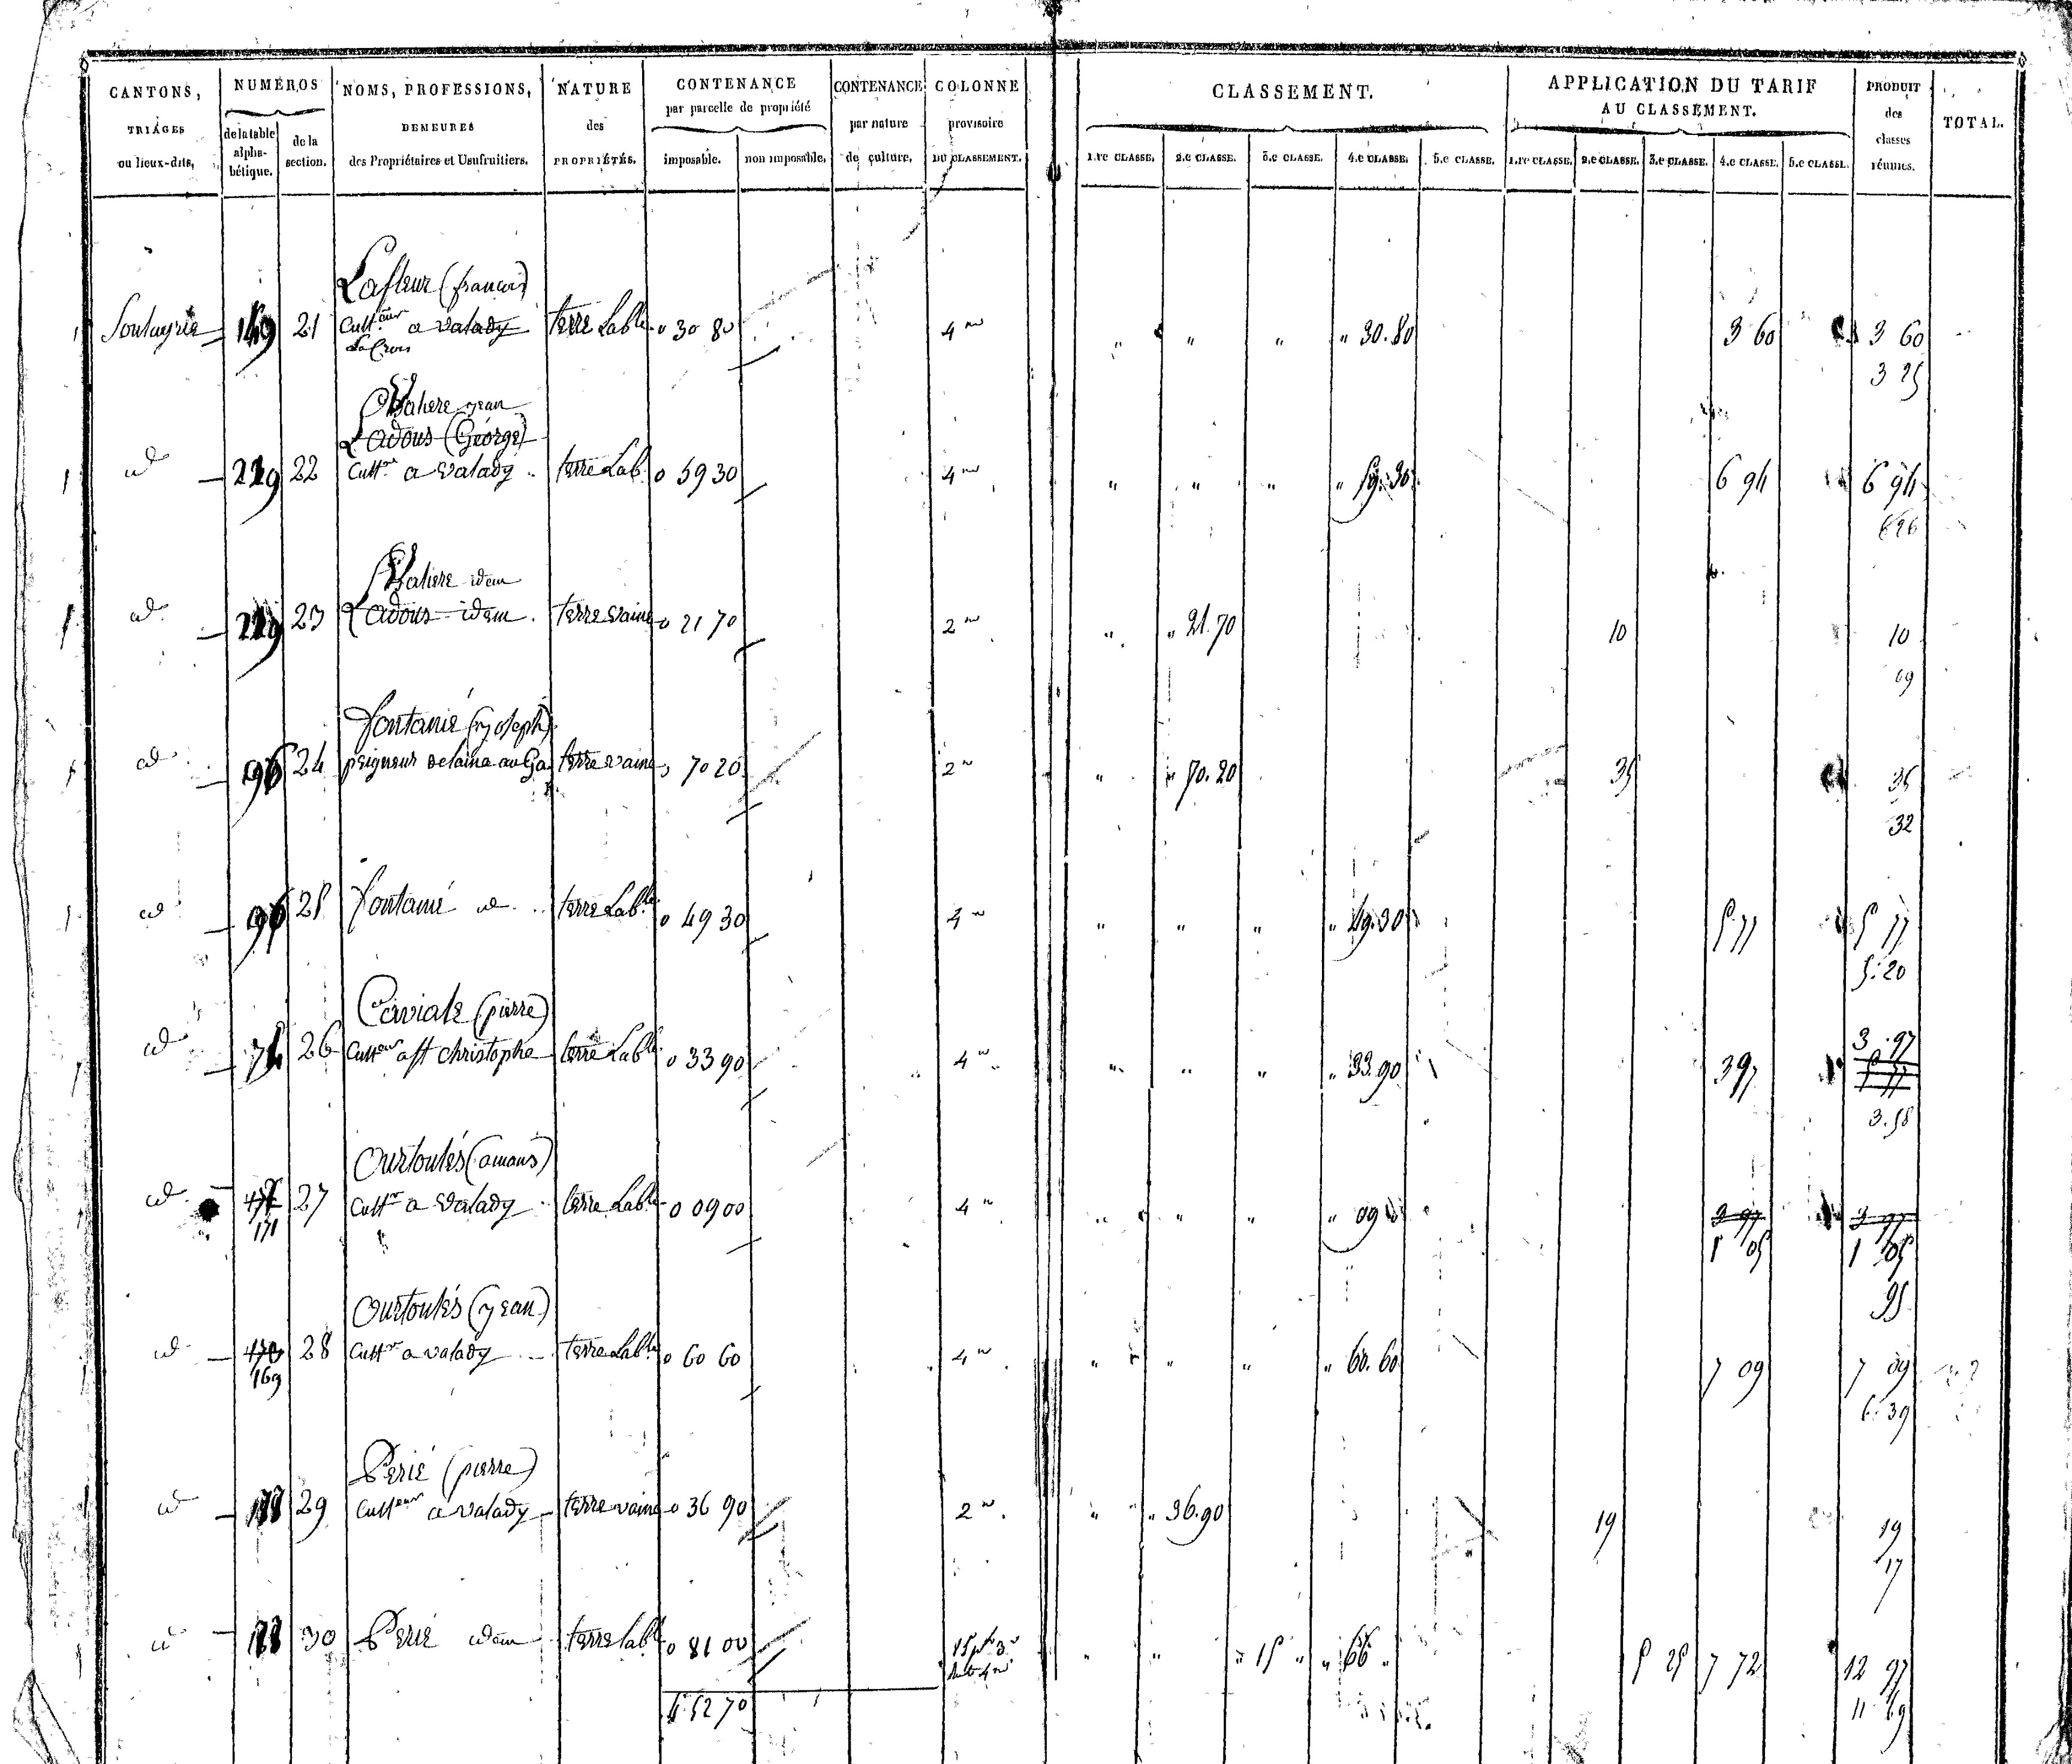 CANTONS, TRIAGES ou lieux-dits,
NUMÉROS de la table alpha-bétique. de la section.
NOMS, PROFESSIONS, DEMEURES des Propriétaires et Usufruitiers.
NATURE des PROPRIÉTÉS.
CONTENANCE par parcelle de propriété imposable. non imposable.
CONTENANCE par nature de culture.
COLONNE provisoire DU CLASSEMENT.
CLASSEMENT.
1.re CLASSE. 2.e CLASSE. 3.e CLASSE. 4.e CLASSE. 5.e CLASSE.
APPLICATION DU TARIF AU CLASSEMENT.
1.re CLASSE. 2.e CLASSE. 3.e CLASSE. 4.e CLASSE. 5.e CLASSE.
PRODUIT des classes réunies.
TOTAL.
Lafleur (francois)
149 21 Cult.eur a valady terre Lab.le 0 30 80 4me " " " " 30.80 3 60 3 60
La Crois
3 25
jean
Ladous (George)
id 22 Cult.r a valady terre Lab. 0 59 30 4me " " " " 59.30 6 94 6 94
idem
id 23 Ladous idem terre vaine 0 21 70 2me " " 21.70 10 10
09
fontanié (joseph)
id 96 24 peigneur de laine au terre vaine 0 70 20 2me " " 70.20 35 35
32
id 96 25 fontanié id terre Lab.le 0 49 30 4me " " " " 49.30 5 77 5 77
5.20
Caviale (pierre)
3.97
id 74 26 Cult.eur a st christophe terre Lab.le 0 33 90 4me " " " " 33.90 3 97
3.58
Ourtoulés (amans)
id 27 Cult.r a valady terre Lab.le 0 09 00 4me " " " " 09 3 97 3 97
171 1 05 1 05
95
Ourtoulés (jean)
id 170 28 Cult.r a valady terre Lab.le 0 60 60 4me " " " " 60.60 7 09 7 09
169
6.39
Perié (pierre)
id 29 Cult.eur a valady terre vaine 0 36 90 2me " " 36.90 19 19
17
id 30 Perié idem terre lab.le 0 81 00 15 p. 3e " " " 15 " " 66 " 5 25 7 72 12 97
4 52 70 11 69